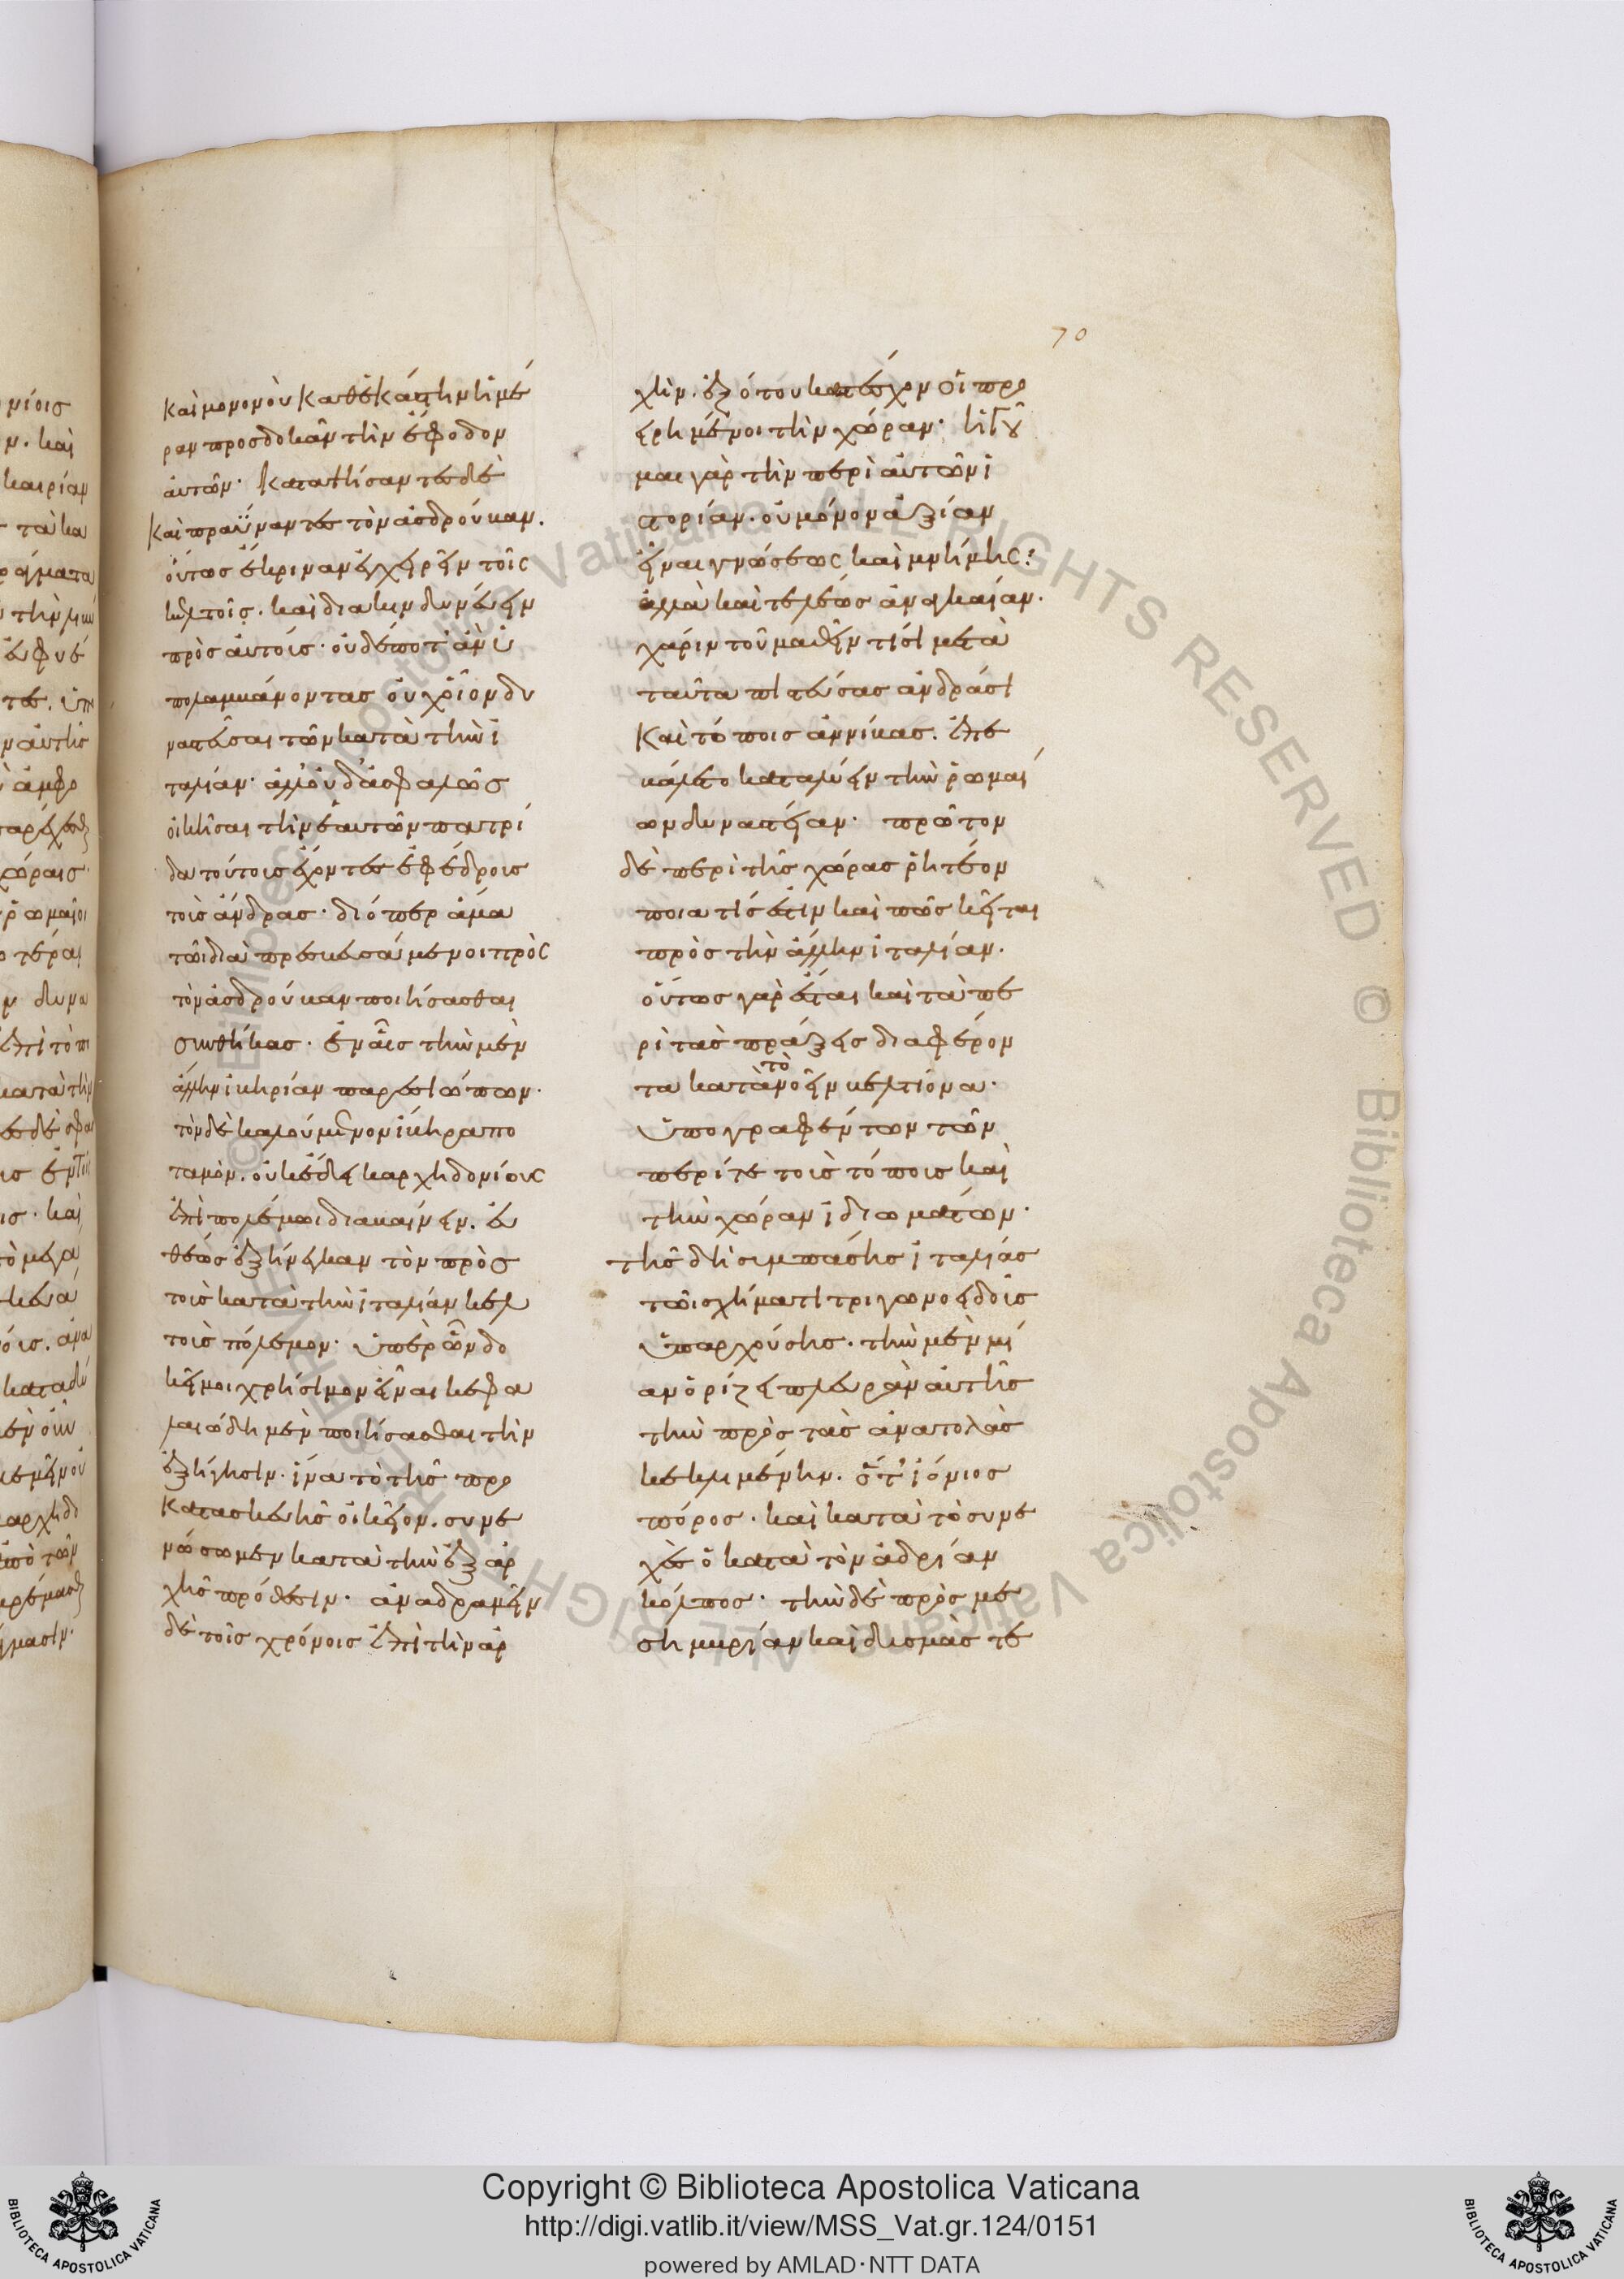 70
καὶ μονονοὺ καθ' ἑκάστην ἡμέ
ραν προσδοκᾶν τὴν ἔφοδον
αὐτῶν· καταψήσαντες δὲ
καὶ πραΰναντες τὸν ἀσδρούβαν.
οὕτως ἔκριναν ἐγχειρεῖν τοῖς
κελτοῖς. καὶ διακινδυνεύειν
πρὸς αὐτούς· οὐδέποτ' ἂν ὑ
πολαμβάνοντας οὐχ οἷον δυ
ναστεῦσαι τῶν κατὰ τὴν ἰ
ταλίαν· ἀλλ' οὐδ' ἀσφαλῶς
οἰκῆσαι τὴν ἑαυτῶν πατρί
δα τούτους ἔχοντες ἐφέδρους
τοὺς ἄνδρας· διόπερ ἅμα
τῶι διαπρεσβευσάμενοι πρὸς
τὸν ἀσδρούβαν ποιήσασθαι
συνθήκας· ἐν αἷς τὴν μὲν
ἄλλην ἰβηρίαν παρεσιώπων·
τὸν δὲ καλούμενον ἴβηρα πο
ταμὸν. οὐκ ἔδει καρχηδονίους
ἐπὶ πολέμωι διαβαίνειν. εὐ
θέως ἐξήνεγκαν τὸν πρὸς
τοὺς κατὰ τὴν ἰταλίαν κελ
τοὺς πόλεμον· ὑπὲρ ὧν δο
κεῖ μοι χρήσιμον εἶναι κεφα
λαιώδη μὲν ποιήσασθαι τὴν
ἐξήγησιν. ἵνα τὸ τῆς προ
κατασκευῆς οἰκεῖον. συνσ
νώσωμεν κατὰ τὴν ἐξ ἀρ
χῆς πρόθεσιν· ἀναδραμεῖν
δὲ τοῖς χρόνοις ἐπὶ τὴν ἀρ
χὴν. ἐξ ὅτου κατέσχον οἱ προ
ειρημένοι τὴν χώραν· ἡγοῦ
μαι γὰρ τὴν περὶ αὐτῶν ἱ
στορίαν. οὐ μόνον ἀξίαν
εἶναι γνώσεως καὶ μνήμης:
ἀλλὰ καὶ τελέως ἀναγκαίαν.
χάριν τοῦ μαθεῖν τίσι μετὰ
ταῦτα πιστεύσας ἀνδράσι
καὶ τόποις ἀννίβας. ἐπε
βάλετο καταλύειν τὴν ῥωμαί
ων δυναστείαν· πρῶτον
δὲ περὶ τῆς χώρας ῥητέον
ποία τίς ἐστιν καὶ πῶς κεῖται
πρὸς τὴν ἄλλην ἰταλίαν.
οὕτως γὰρ ἔσται καὶ τὰ πε
ρὶ τὰς πράξεις διαφέρον
τα κατὰ τὸ νοεῖν βελτίονα·
ὑπογραφέντων τῶν
περί τε τοὺς τόπους καὶ
τὴν χώραν ἰδιωμάτων·
τῆς δὴ συμπάσης ἰταλίας
τῶι σχήματι τριγωνοειδοῦς
ὑπαρχούσης. τὴν μὲν μί
αν ὁρίζει πλευρὰν αὐτῆς
τὴν πρὸς τὰς ἀνατολὰς
κεκλιμένην. ὅ τ' ἰόνιος
πόρος. καὶ κατὰ τὸ συνε
χὲς ὁ κατὰ τὸν ἀδρίαν
κόλπος· τὴν δὲ πρὸς με
σημβρίαν καὶ δυσμὰς τε
Copyright © Biblioteca Apostolica Vaticana
http://digi.vatlib.it/view/MSS_Vat.gr.124/0151
powered by AMLAD·NTT DATA
BIBLIOTECA APOSTOLICA VATICANA
BIBLIOTECA APOSTOLICA VATICANA